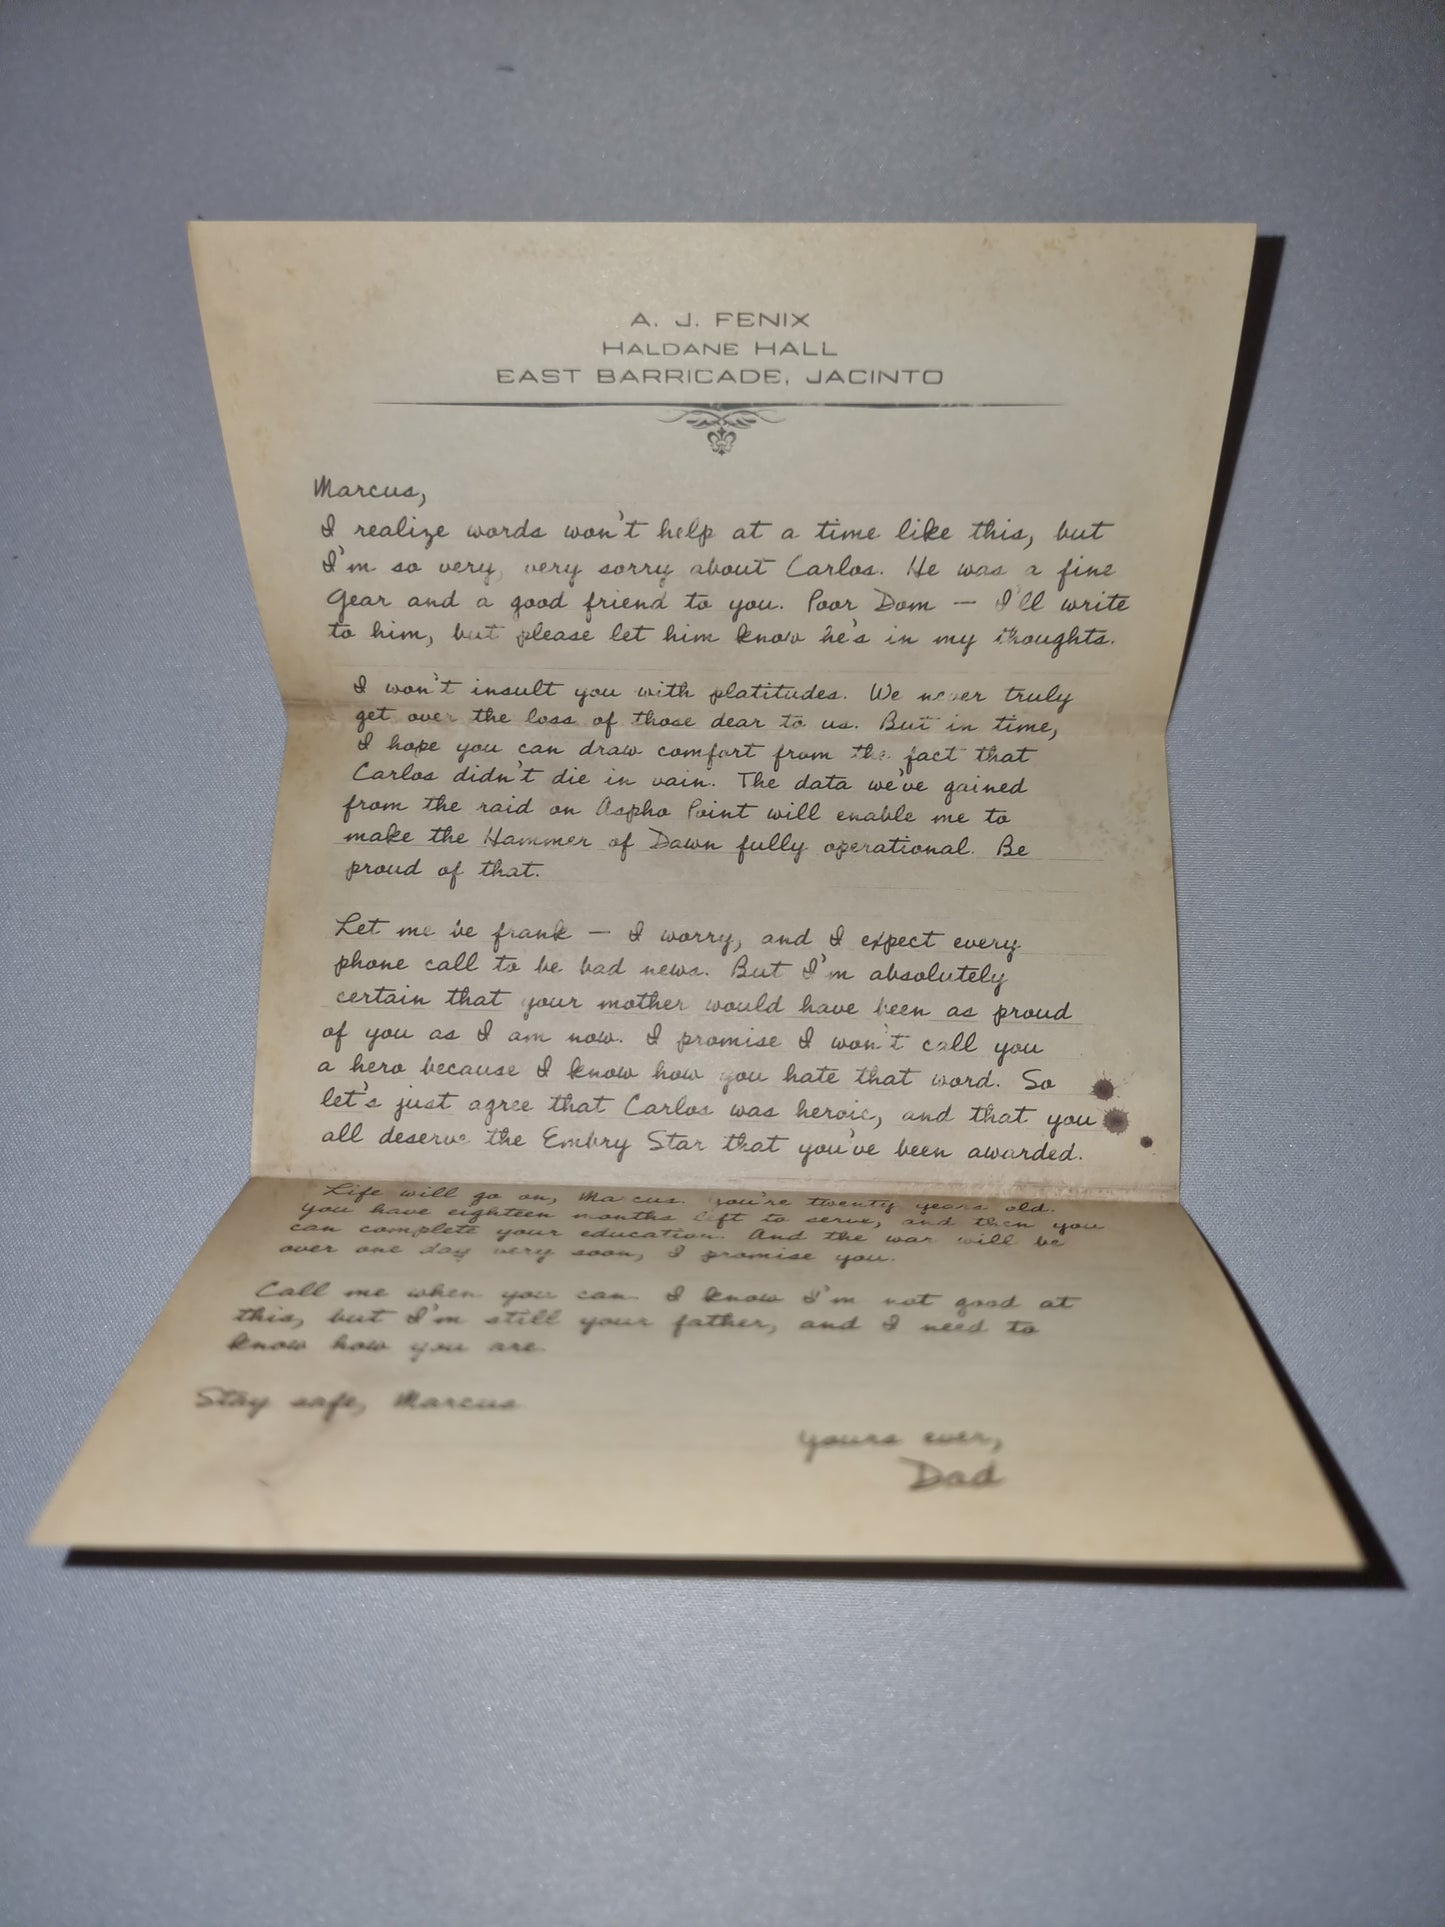 A. J. FENIX
HALDANE HALL
EAST BARRICADE, JACINTO
Marcus,
I realize words won't help at a time like this, but
I'm so very, very sorry about Carlos. He was a fine
Gear and a good friend to you. Poor Dom — I'll write
to him, but please let him know he's in my thoughts.
I won't insult you with platitudes. We never truly
get over the loss of those dear to us. But in time,
I hope you can draw comfort from the fact that
Carlos didn't die in vain. The data we've gained
from the raid on Aspho Point will enable me to
make the Hammer of Dawn fully operational. Be
proud of that.
Let me be frank — I worry, and I expect every
phone call to be bad news. But I'm absolutely
certain that your mother would have been as proud
of you as I am now. I promise I won't call you
a hero because I know how you hate that word. So
let's just agree that Carlos was heroic, and that you
all deserve the Embry Star that you've been awarded.
Life will go on, Marcus. You're twenty years old.
You have eighteen months left to serve, and then you
can complete your education. And the war will be
over one day very soon, I promise you.
Call me when you can. I know I'm not good at
this, but I'm still your father, and I need to
know how you are.
Stay safe, Marcus
Yours ever,
Dad